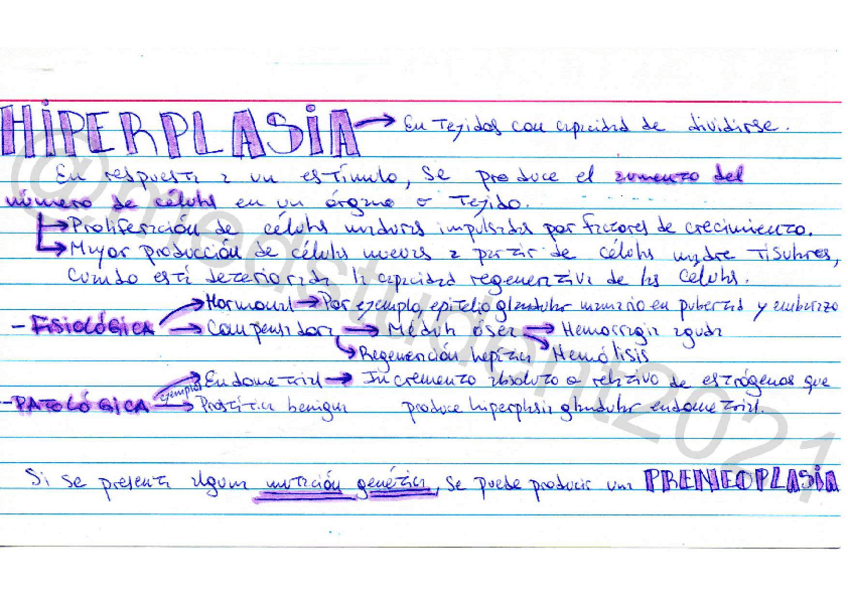 HIPERPLASIA → En Tejidos con capacidad de dividirse.
En respuesta a un estímulo, se produce el aumento del
número de células en un órgano o Tejido.
→ Proliferación de células maduras impulsadas por factores de crecimiento.
→ Mayor producción de células nuevas a partir de células madre Tisulares,
cuando está deteriorada la capacidad regenerativa de las células.
→ Hormonal → Por ejemplo, epitelio glandular mamario en pubertad y embarazo
- FISIOLÓGICA → Compensadora → Médula ósea → Hemorragia aguda
→ Regeneración hepática → Hemólisis
ejemplos → Endometrial → Incremento absoluto o relativo de estrógenos que
- PATOLÓGICA → Prostática benigna produce hiperplasia glandular endometrial.
Si se presenta alguna mutación genética, se puede producir una PRENEOPLASIA
@medstudent2021